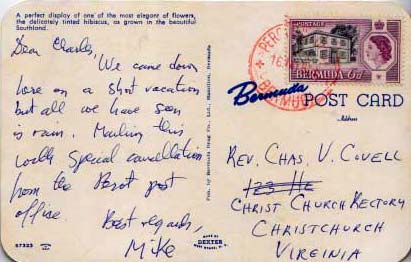 A perfect display of one of the most elegant of flowers,
the delicately tinted hibiscus, as grown in the beautiful
Southland.
Dear Charles,
We came down
here on a short vacation
but all we have seen
is rain. Mailing this
with special cancellation
from the Perot post
office.
Best regards,
Mike
57323
MADE BY
DEXTER
WEST NYACK, N. Y.
Pub. by Bermuda Drug Co., Ltd., Hamilton, Bermuda
POSTAGE
BERMUDA 6d
Bermuda POST CARD
Address
REV. CHAS. V. COVELL
CHRIST CHURCH RECTORY
CHRISTCHURCH
VIRGINIA